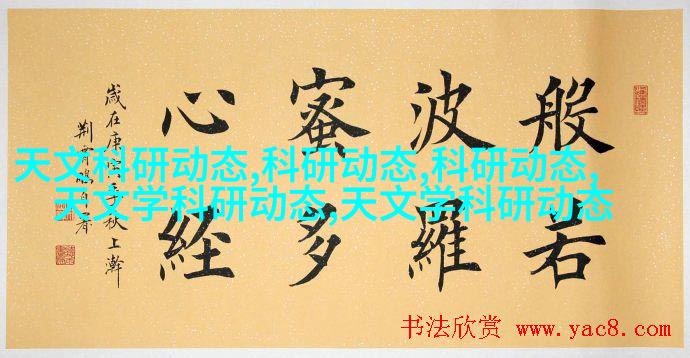 般若
波羅
蜜多
心経
歲在庚寅年秋上澣
荆霄鵬自署
天文科研动态,科研动态,科研动态,
天文学科研动态,天文学科研动态
书法欣赏 www.yac8.com